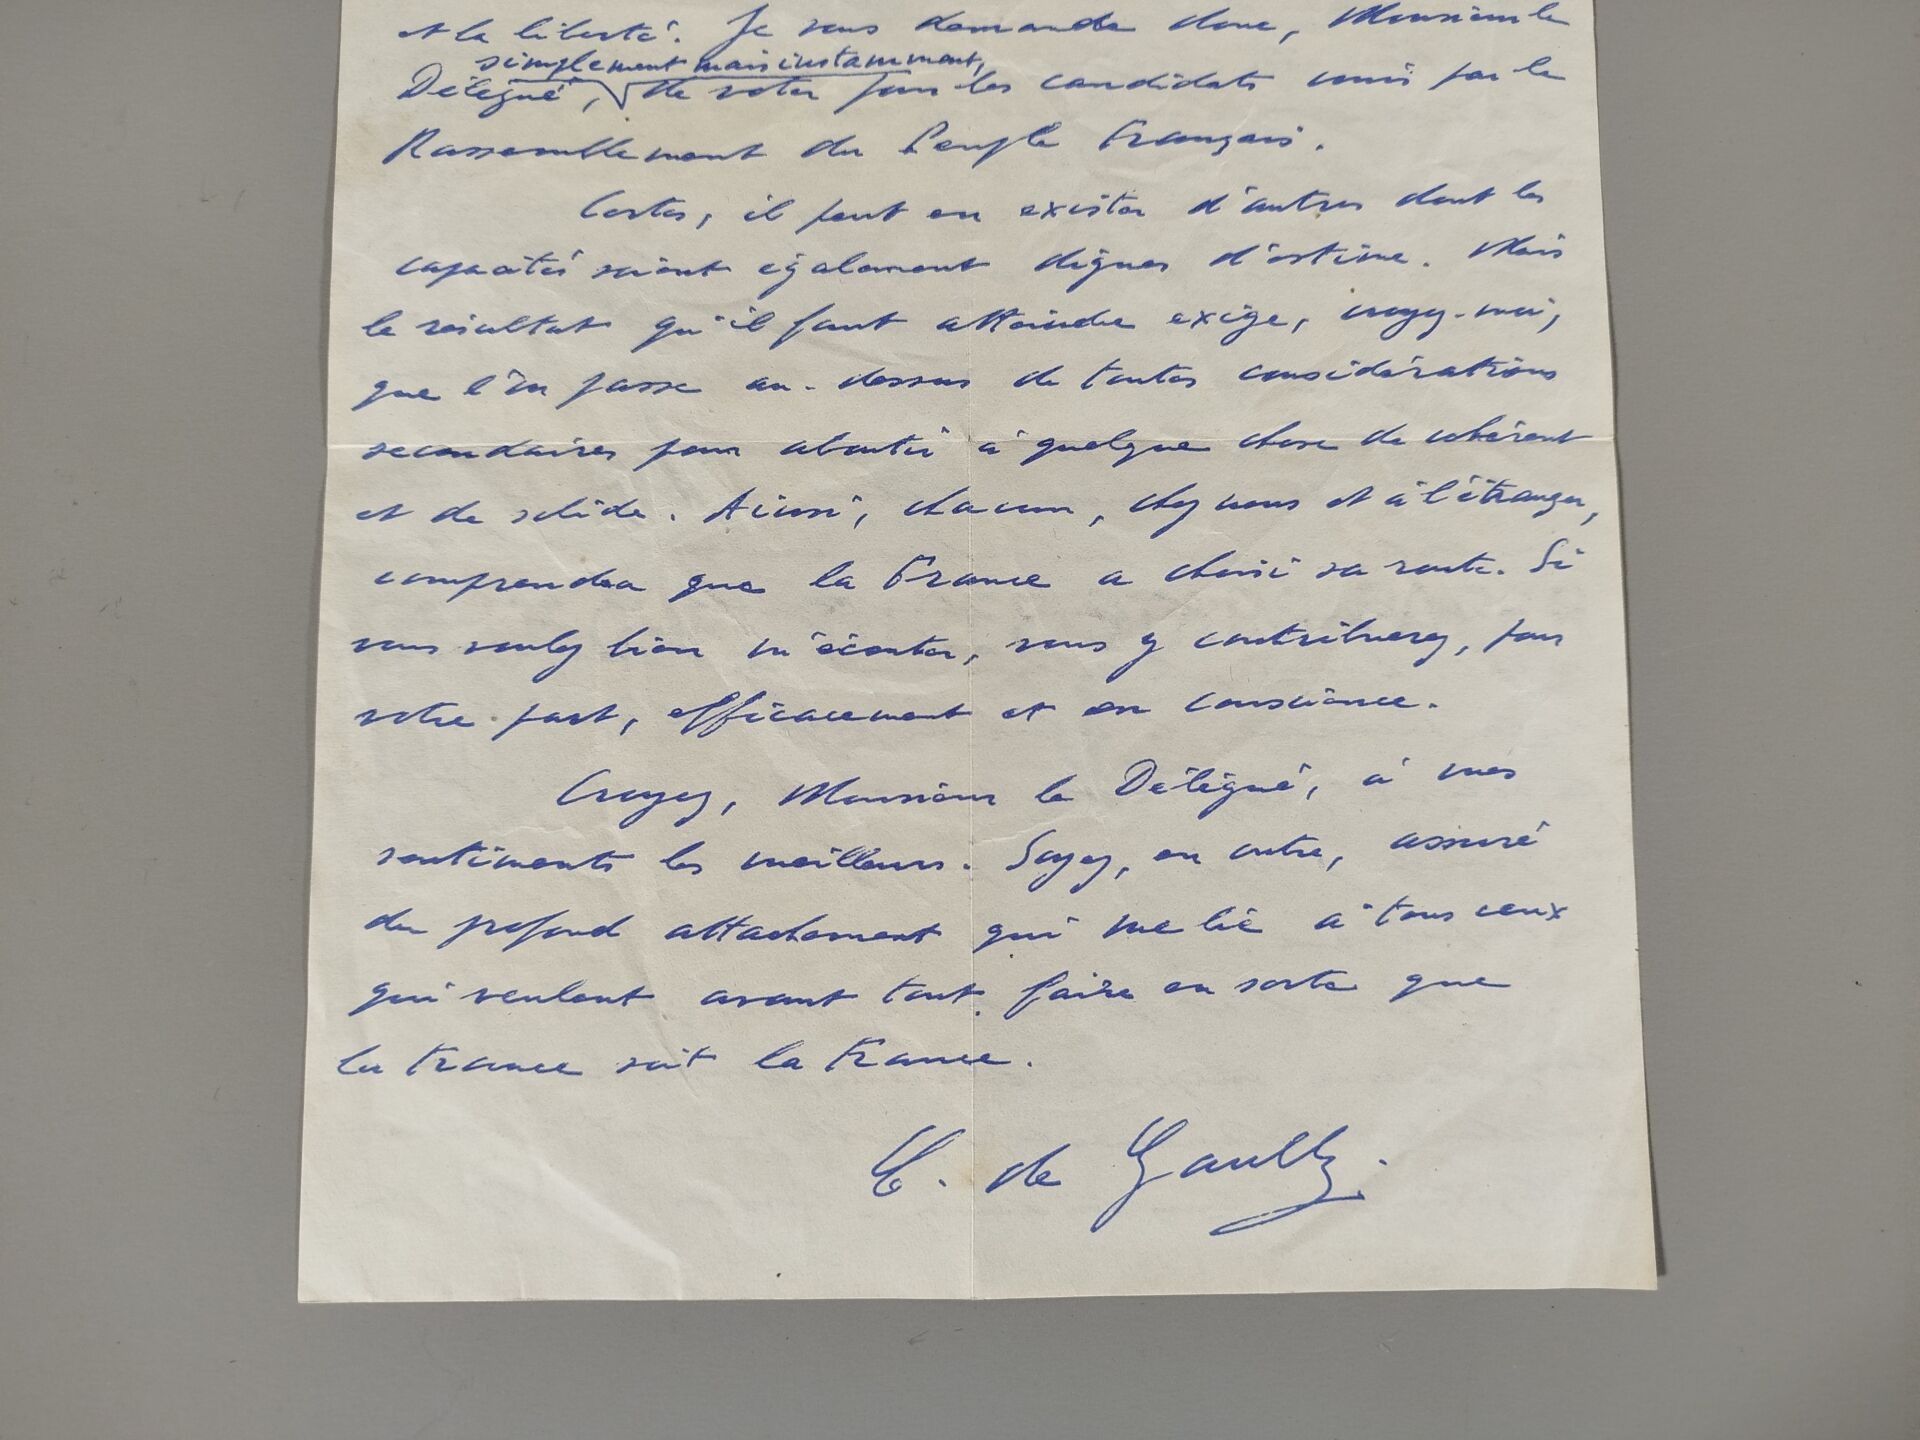 et la liberté. Je vous demande donc, Monsieur le
simplement mais instamment,
Délégué, de voter pour les candidats unis par le
Rassemblement du Peuple Français.
Certes, il peut en exister d'autres dont les
capacités soient également dignes d'estime. Mais
le résultat qu'il faut atteindre exige, croyez-moi,
que l'on passe au-dessus de toutes considérations
secondaires pour aboutir à quelque chose de cohérent
et de solide. Ainsi, chacun, chez nous et à l'étranger,
comprendra que la France a choisi sa route. Si
vous voulez bien m'écouter, vous y contribuerez, pour
votre part, efficacement et en conscience.
Croyez, Monsieur le Délégué, à mes
sentiments les meilleurs. Soyez, en outre, assuré
du profond attachement qui me lie à tous ceux
qui veulent avant tout faire en sorte que
la France soit la France.
C. de Gaulle.